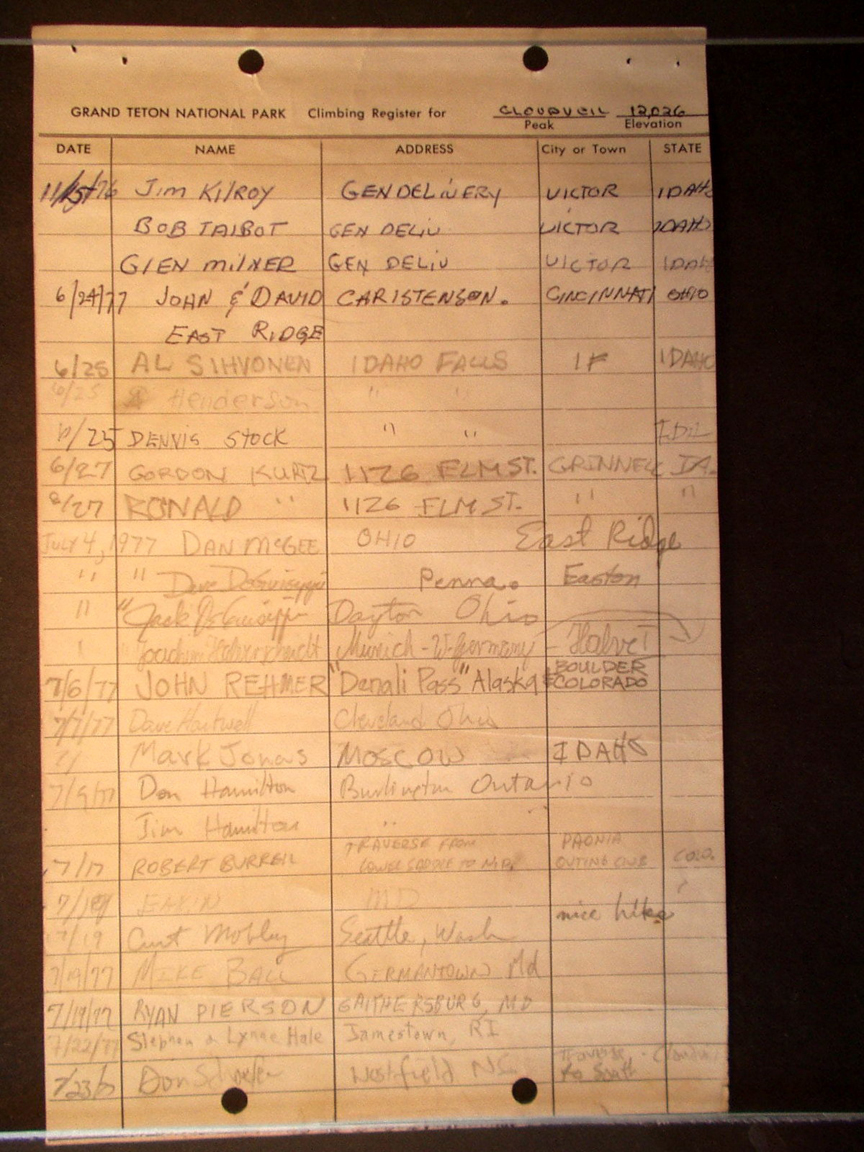 GRAND TETON NATIONAL PARK Climbing Register for CLOUDVEIL 12,026
Peak Elevation
DATE NAME ADDRESS City or Town STATE
11/25/76 JIM KILROY GEN DELIVERY VICTOR IDAHO
BOB TALBOT GEN DELIV VICTOR IDAHO
GLEN MILNER GEN DELIV VICTOR IDAH
6/24/77 JOHN & DAVID CARISTENSON. CINCINNATI OHIO
EAST RIDGE
6/25 AL SIHVONEN IDAHO FALLS IF IDAHO
6/25 Henderson " "
6/25 DENNIS STOCK " "
6/27 GORDON KURTZ 1126 ELM ST. GRINNELL IA.
6/27 RONALD " 1126 ELM ST. " "
JULY 4, 1977 DAN McGEE OHIO East Ridge
" " Dave Penna. Easton
" " Jack Dayton Ohio
Joachim Munich - W-Germany -
BOULDER
7/6/77 JOHN REHMER "Denali Pass" Alaska & COLORADO
7/7/77 Dave Hartwell Cleveland Ohio
" Mark Jonas MOSCOW IDAHO
7/9/77 Don Hamilton Burlington Ontario
Jim Hamilton "
TRAVERSE FROM PAONIA
7/17 ROBERT BURRELL LOWER SADDLE TO OUTING CLUB COLO.
EAKIN MD
nice hike
7/19 Curt Mobley Seattle, Wash
7/19/77 MIKE BALL GERMANTOWN Md
7/19/77 RYAN PIERSON GAITHERSBURG, MD
7/22/77 Stephen & Lynne Hale Jamestown, RI
7/23 Don Westfield